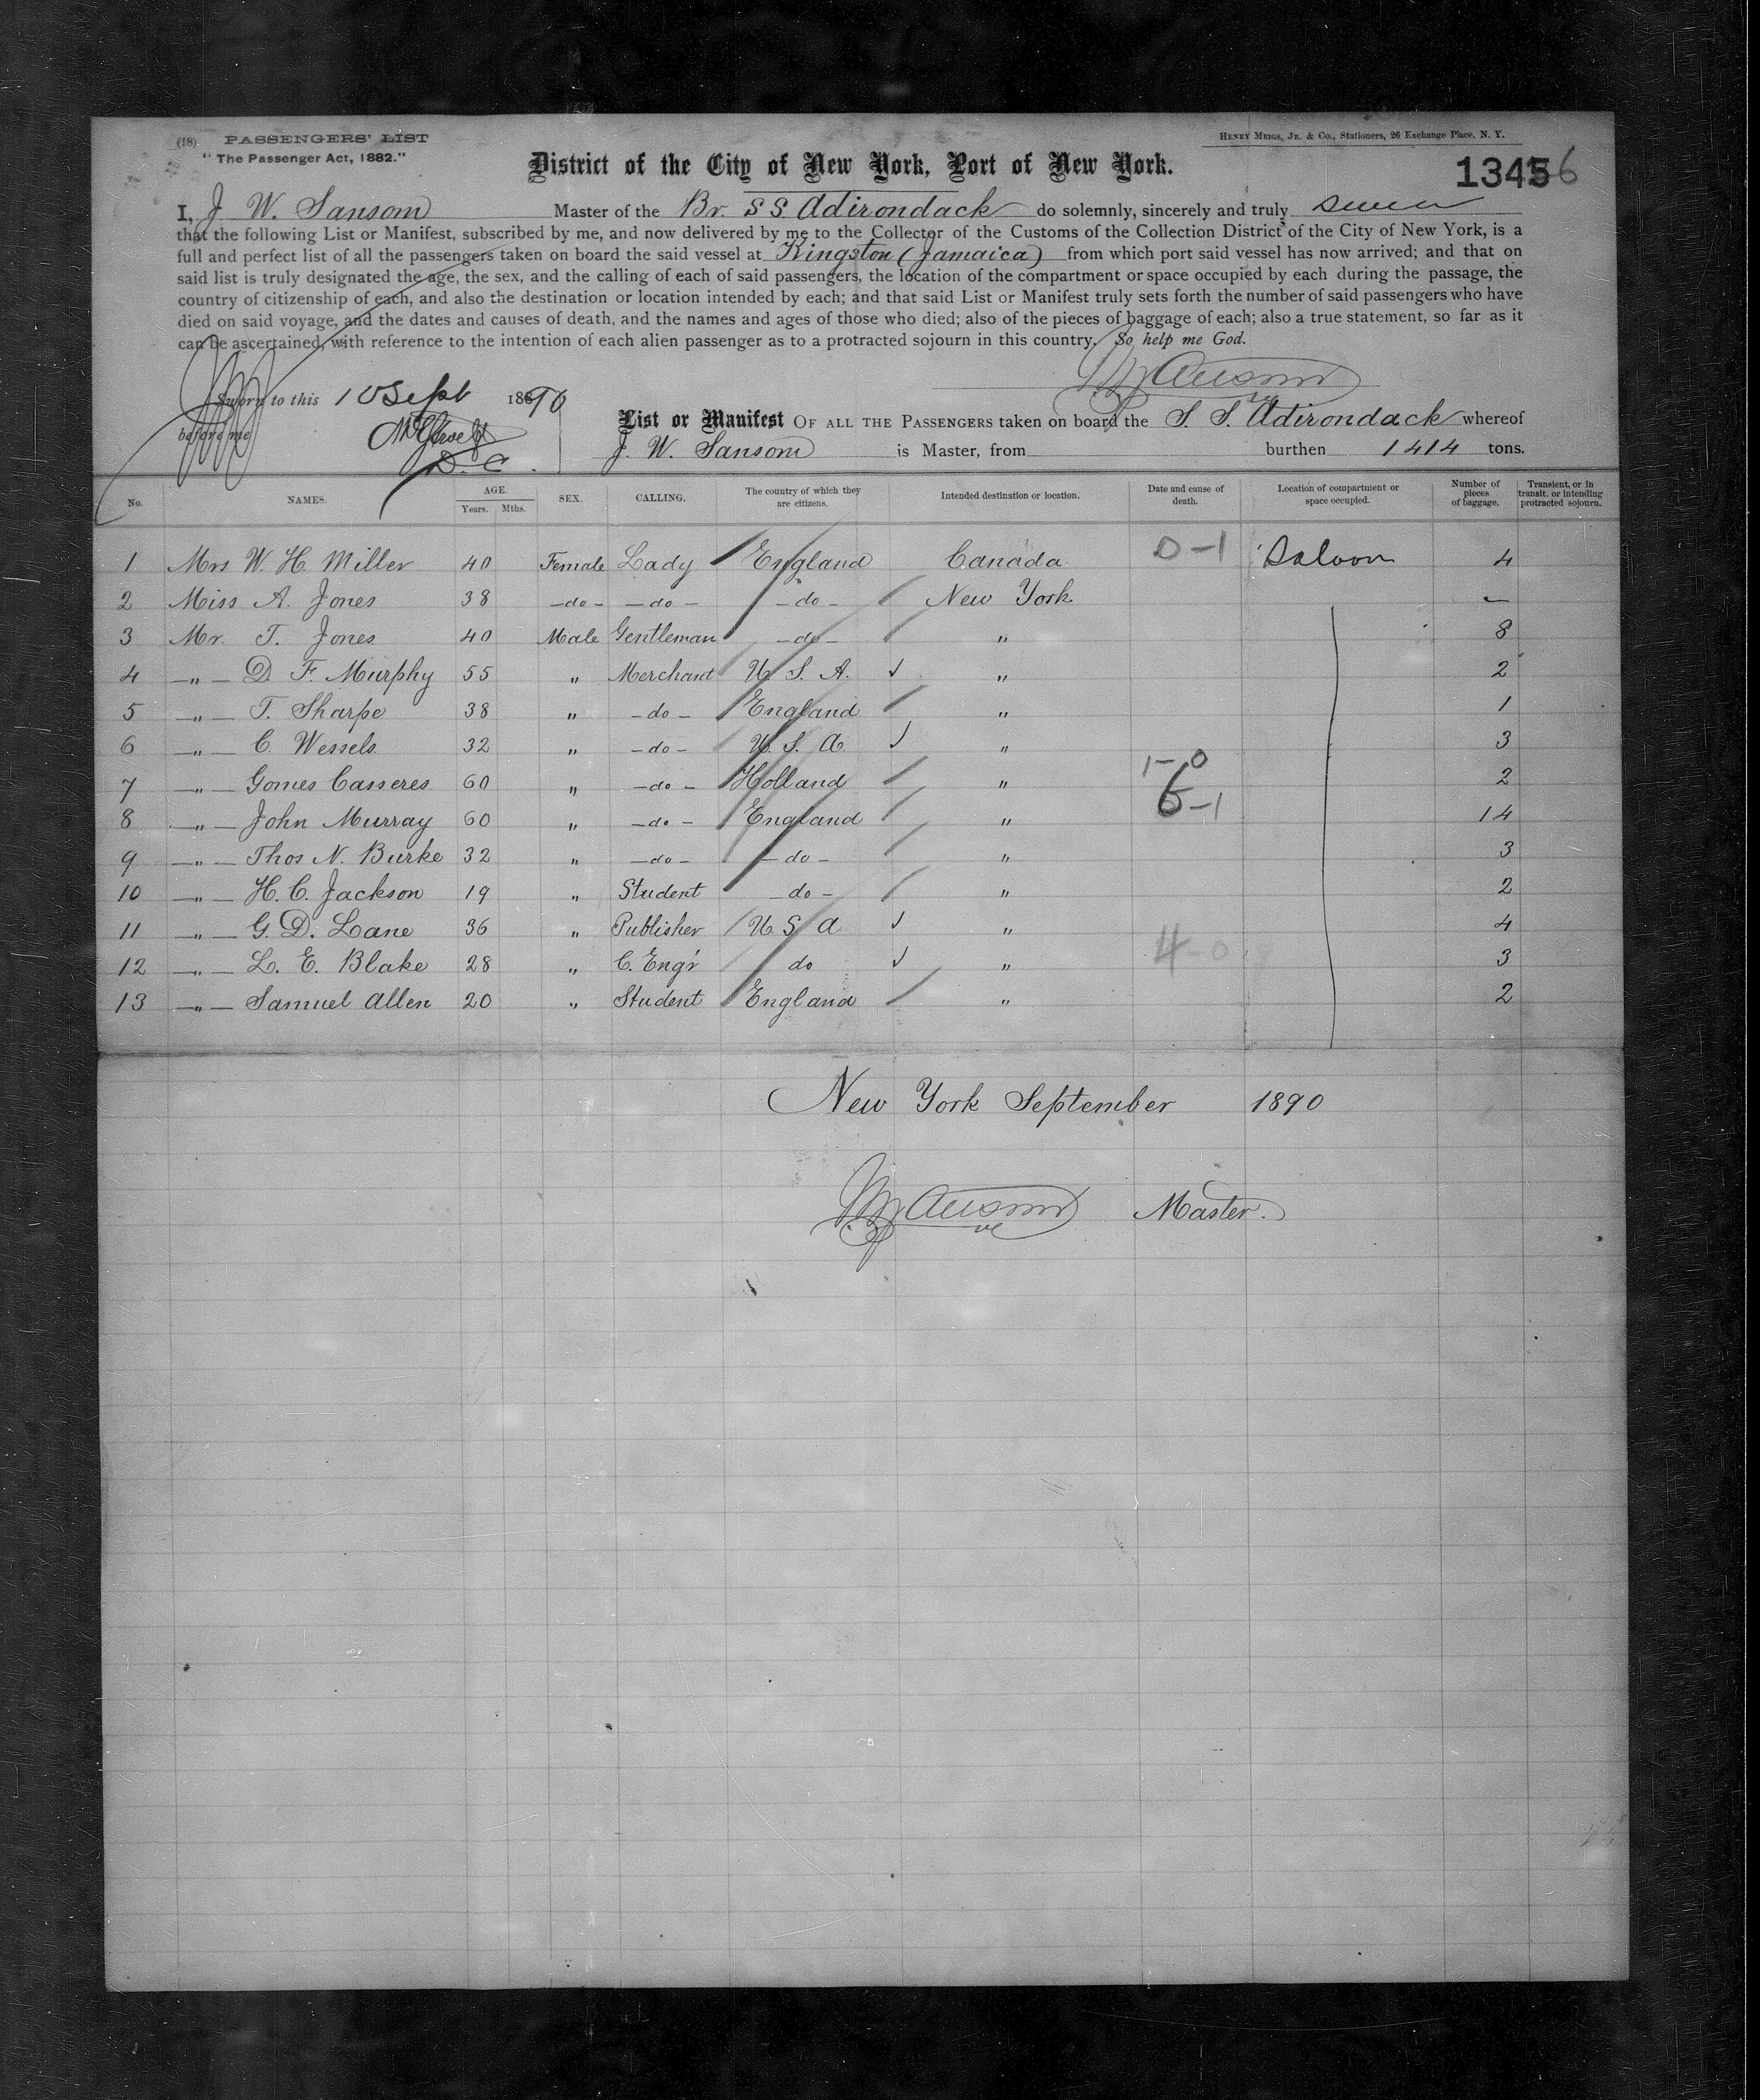 (18) PASSENGERS' LIST
"The Passenger Act, 1882."
HENRY MEIGS, JR. & CO., Stationers, 26 Exchange Place, N. Y.
District of the City of New York, Port of New York.
1345
I, J W. Sansom Master of the Br. S S. Adirondack do solemnly, sincerely and truly swear
that the following List or Manifest, subscribed by me, and now delivered by me to the Collector of the Customs of the Collection District of the City of New York, is a
full and perfect list of all the passengers taken on board the said vessel at Kingston (Jamaica) from which port said vessel has now arrived; and that on
said list is truly designated the age, the sex, and the calling of each of said passengers, the location of the compartment or space occupied by each during the passage, the
country of citizenship of each, and also the destination or location intended by each; and that said List or Manifest truly sets forth the number of said passengers who have
died on said voyage, and the dates and causes of death, and the names and ages of those who died; also of the pieces of baggage of each; also a true statement, so far as it
can be ascertained, with reference to the intention of each alien passenger as to a protracted sojourn in this country. So help me God.
JW Sansom
Sworn to this 10 Sept 1890
before me
D. C.
List or Manifest OF ALL THE PASSENGERS taken on board the S. S. Adirondack whereof
J. W. Sansom is Master, from burthen 1414 tons.
No. NAMES. AGE. Years. Mths. SEX. CALLING. The country of which they are citizens. Intended destination or location. Date and cause of death. Location of compartment or space occupied. Number of pieces of baggage. Transient, or in transit, or intending protracted sojourn.
1 Mrs W. H. Miller 40 Female Lady England Canada 0-1 Saloon 4
2 Miss A. Jones 38 -do- -do- -do- New York
3 Mr. T. Jones 40 Male Gentleman -do- " 8
4 -"- D. F. Murphy 55 " Merchant U. S. A. " 2
5 -"- T. Sharpe 38 " -do- England " 1
6 -"- C. Wessels 32 " -do- U. S. A " 3
7 -"- Gomes Casseres 60 " -do- Holland " 1-0 2
8 -"- John Murray 60 " -do- England " 6-1 14
9 -"- Thos N. Burke 32 " -do- -do- " 3
10 -"- H. C. Jackson 19 " Student do- " 2
11 -"- G. D. Lane 36 " Publisher U. S A " 4
12 -"- L. E. Blake 28 " C. Eng'r do " 4-0 3
13 -"- Samuel Allen 20 " Student England " 2
New York September 1890
JW Sansom Master.